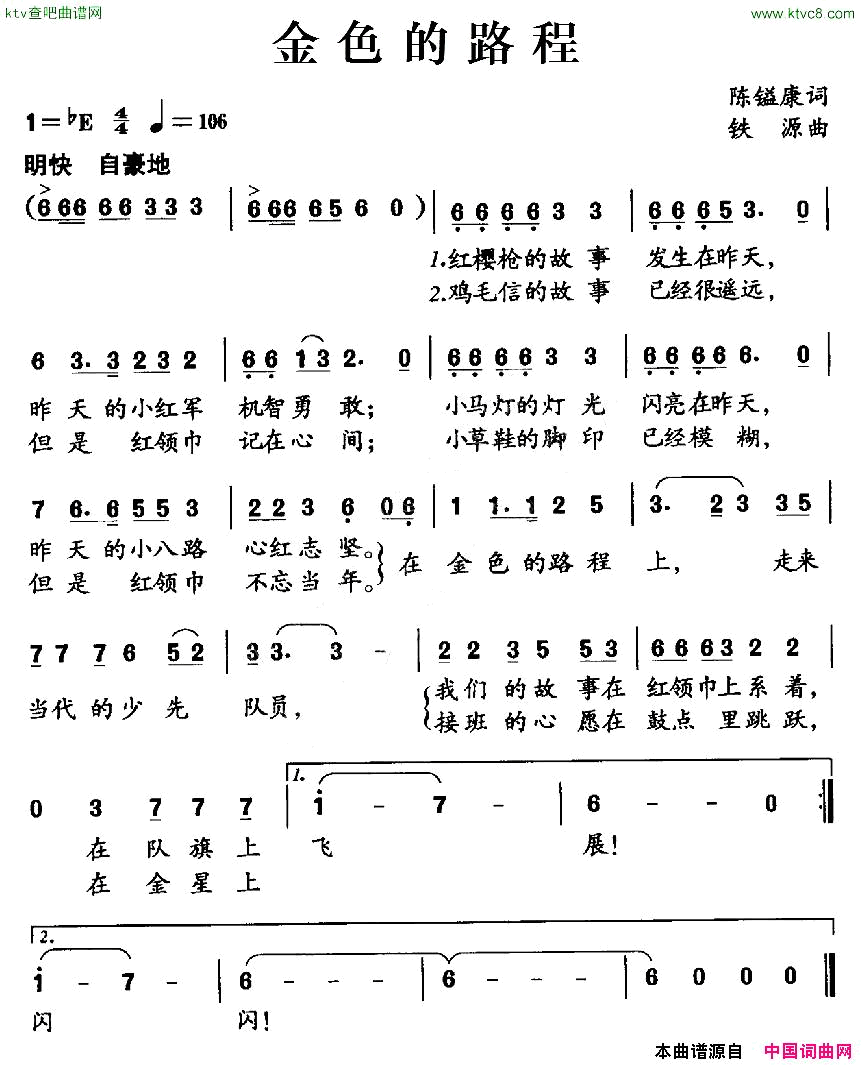 ktv查吧曲谱网
www.ktvc8.com
金色的路程
陈镒康词
1=♭E 4/4 ♩=106
铁 源曲
明快 自豪地
(6 66 66 33 3 | 6 66 65 6 0) | 66 66 3 3 | 66 65 3. 0 |
1.红樱枪的故事 发生在昨天,
2.鸡毛信的故事 已经很遥远,
6 3. 3 23 2 | 66 13 2. 0 | 66 66 3 3 | 66 66 6. 0 |
昨天的小红军 机智勇敢; 小马灯的灯光 闪亮在昨天,
但是 红领巾 记在心间; 小草鞋的脚印 已经模糊,
7 6. 6 55 3 | 22 3 6 06 | 1 1. 1 2 5 | 3. 2 3 35 |
昨天的小八路 心红志坚。
但是 红领巾 不忘当年。
在 金色的路程上, 走来
7 7 7 6 52 | 3 3. 3 - | 2 2 3 5 53 | 66 63 2 2 |
当代的少先 队员,
我们的故事在 红领巾上系着,
接班的心愿在 鼓点里跳跃,
1.
0 3 7 7 7 | 1 - 7 - | 6 - - 0 :|
在队旗上 飞 展!
在金星上
2.
1 - 7 - | 6 - - - | 6 - - - | 6 0 0 0 |
闪 闪!
本曲谱源自 中国词曲网